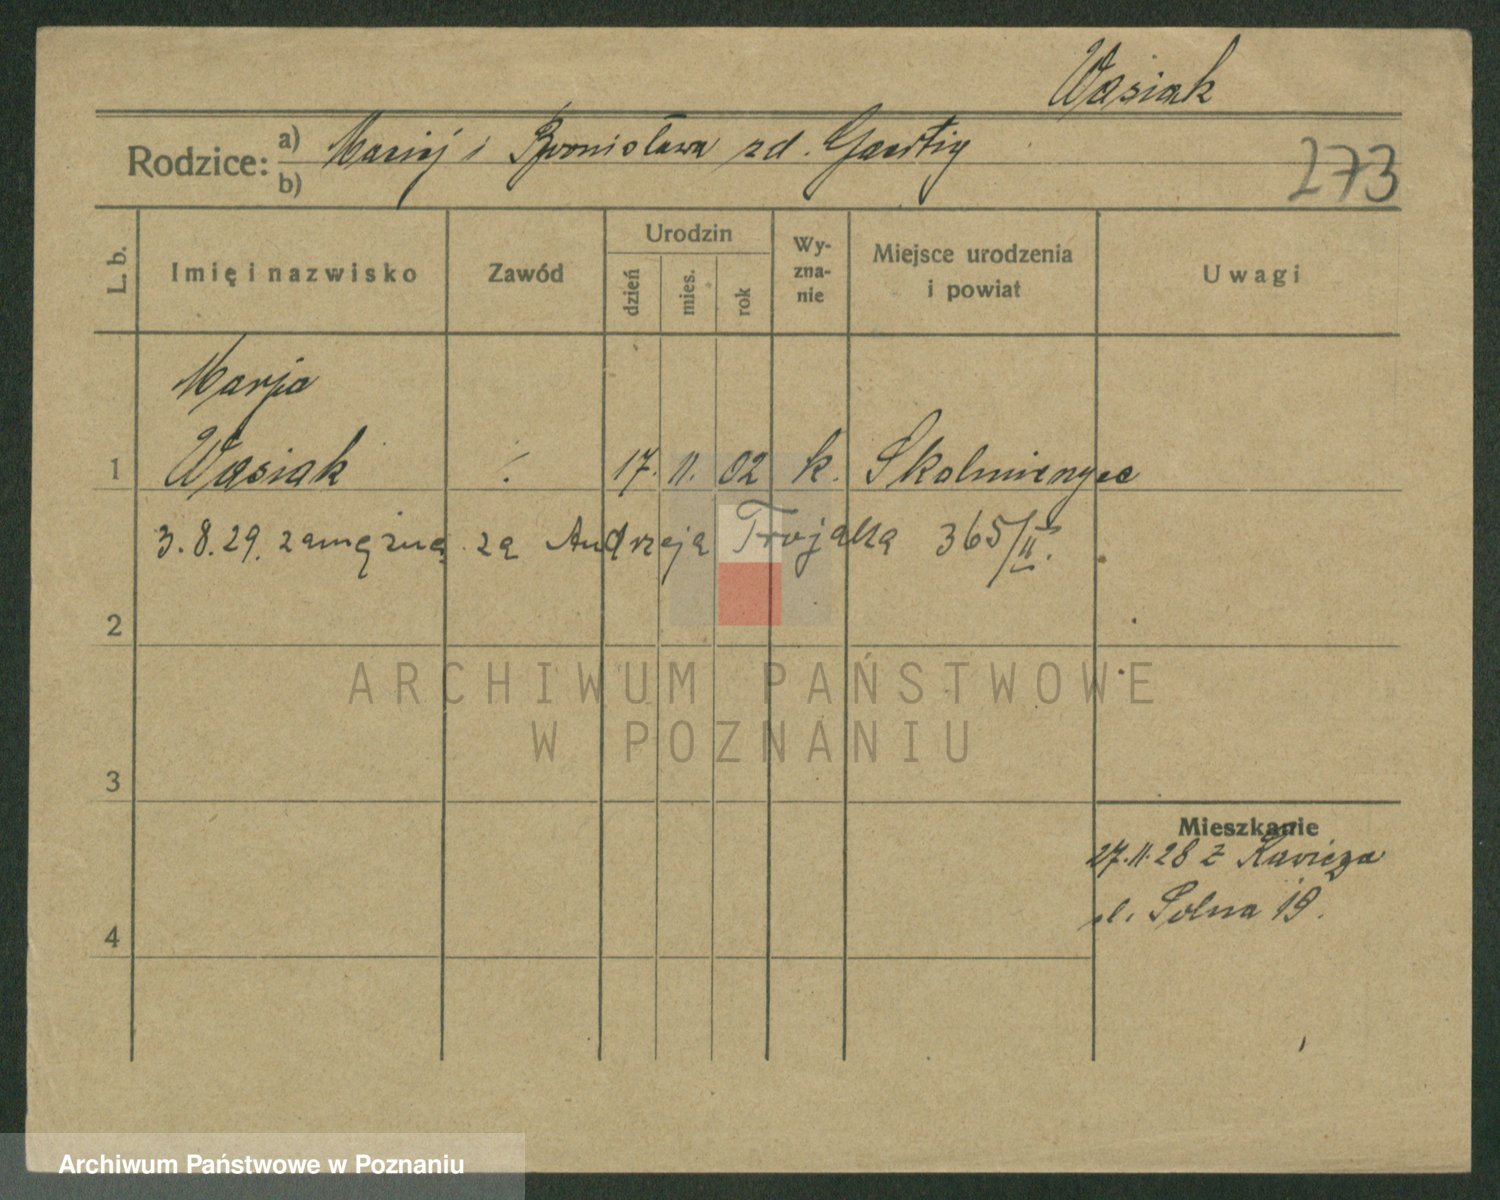 Wasiak
Rodzice: a) Maciej i Bronisława zd. Gaertig
b)
273
L. b.
Imię i nazwisko
Zawód
Urodzin
dzień
mies.
rok
Wy-
zna-
nie
Miejsce urodzenia
i powiat
Uwagi
Marja
1 Wasiak 17. 11. 02 k.
3.8.29. zamężna za Andrzeja 365/II.
2
ARCHIWUM PAŃSTWOWE
W POZNANIU
3
Mieszkanie
27.11.28 z
4
ul. Solna 19.
Archiwum Państwowe w Poznaniu